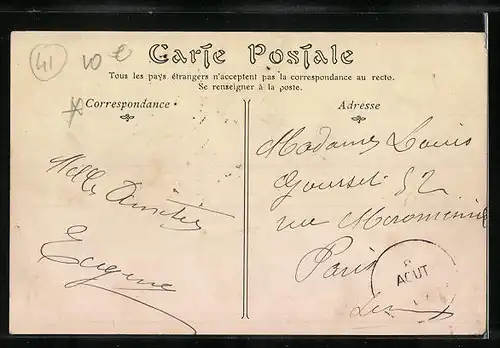 41
10 e
Carte Postale
Tous les pays étrangers n'acceptent pas la correspondance au recto.
Se renseigner à la poste.
Correspondance
Mille Amitiés
Eugène
Adresse
Madame Louis
Gousset 52
rue Miromesnil
Paris
AOUT